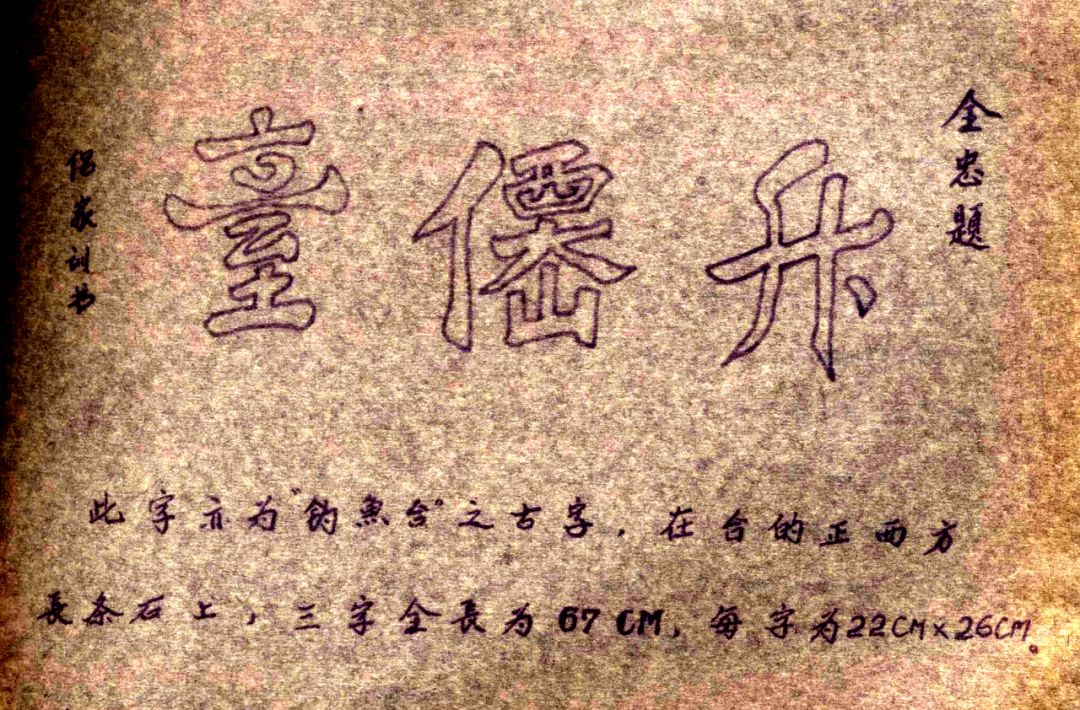 全忠題
升僊臺
家训书
此字亦为"钓魚台"之古字，在台的正西方
長条石上，三字全長为67CM，每字为22CM×26CM。